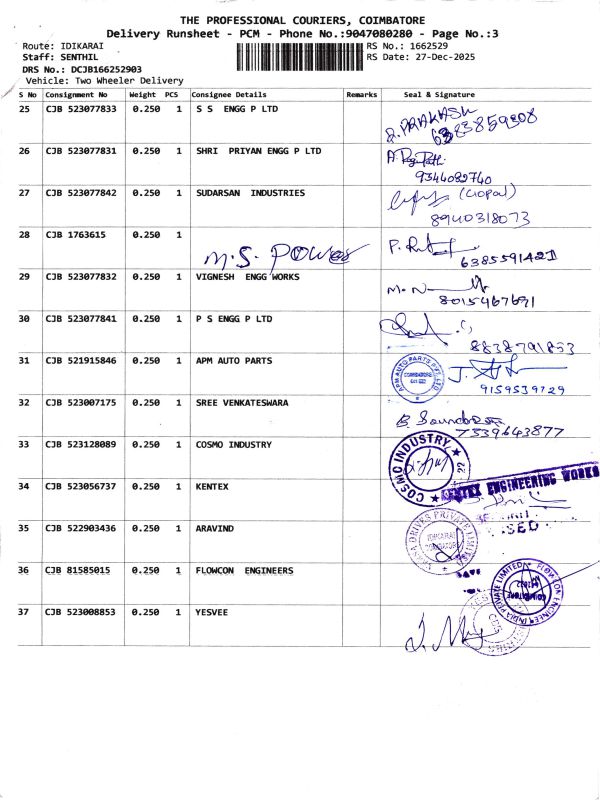 THE PROFESSIONAL COURIERS, COIMBATORE
Delivery Runsheet - PCM - Phone No.:9047080280 - Page No.:3
Route: IDIKARAI RS No.: 1662529
Staff: SENTHIL RS Date: 27-Dec-2025
DRS No.: DCJB166252903
Vehicle: Two Wheeler Delivery
S No Consignment No Weight PCS Consignee Details Remarks Seal & Signature
25 CJB 523077833 0.250 1 S S ENGG P LTD
R. PRAKASH
6383859808
26 CJB 523077831 0.250 1 SHRI PRIYAN ENGG P LTD
9344082740
27 CJB 523077842 0.250 1 SUDARSAN INDUSTRIES
(Gopal)
8940318073
28 CJB 1763615 0.250 1
M.S. POWER
6385591421
29 CJB 523077832 0.250 1 VIGNESH ENGG WORKS
8015467691
30 CJB 523077841 0.250 1 P S ENGG P LTD
8838791853
31 CJB 521915846 0.250 1 APM AUTO PARTS
APM AUTO PARTS PVT LTD
COIMBATORE
9159539729
32 CJB 523007175 0.250 1 SREE VENKATESWARA
7539643877
33 CJB 523128089 0.250 1 COSMO INDUSTRY
COSMIC INDUSTRY
22
34 CJB 523056737 0.250 1 KENTEX
KENTEX ENGINEERING WORKS
35 CJB 522903436 0.250 1 ARAVIND
DRIVES PRIVATE LIMITED
IDIKARAI
COIMBATORE
36 CJB 81585015 0.250 1 FLOWCON ENGINEERS
FLOW CON ENGINEER INDIA PRIVATE LIMITED
COIMBATORE
37 CJB 523008853 0.250 1 YESVEE